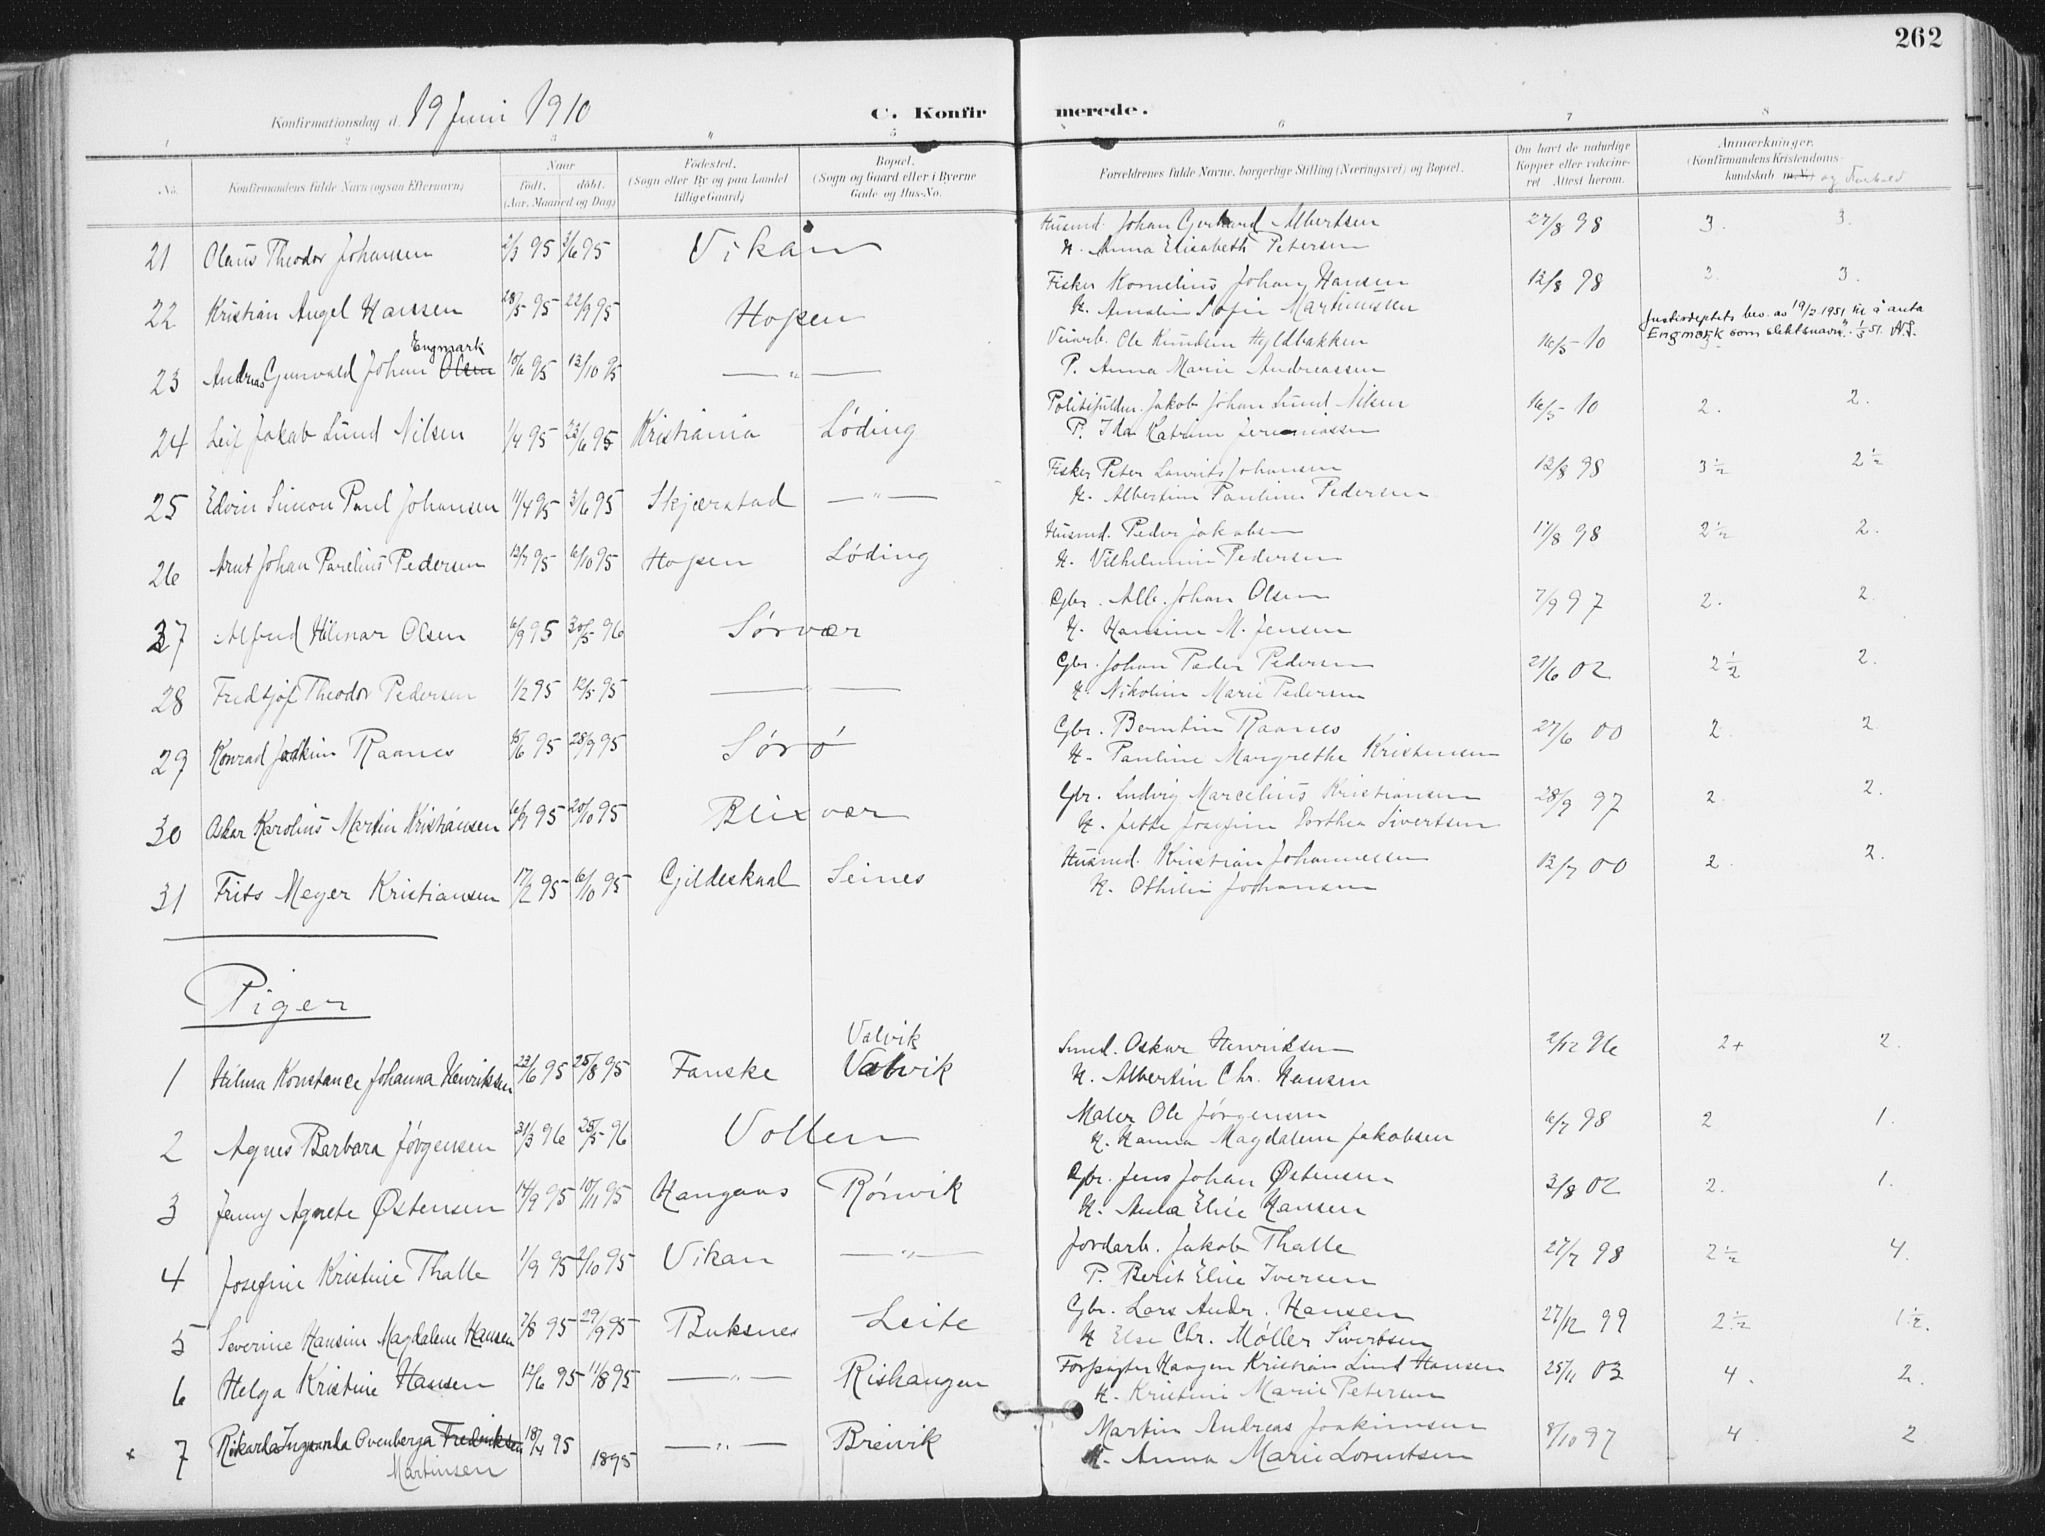 262
Konfirmationsdag d. 19 Juni 1910
C. Konfirmerede.
1 2 3 " 5 6 7 8
No. Konfirmandens fulde Navn (ogsaa Efternavn)
Naar født. døbt. (Aar, Maaned og Dag)
Fødested. (Sogn eller By og paa Landet tillige Gaard)
Bopæl. (Sogn og Gaard eller i Byerne Gade og Hus-No.
Forældrenes fulde Navne, borgerlige Stilling (Næringsvei) og Bopæl.
Om havt de naturlige Kopper eller vakcineret Attest herom.
Anmærkninger. (Konfirmandens Kristendomskundskab m.v.) og Forhold
21 Olaus Theodor Johansen 2/3 95 3/6 95 Vikan Husmd Johan Gerhard Albertsen 27/8 98 3. 3.
H. Anna Elisabeth Petersen
22 Kristian Angel Hansen 28/5 95 22/9 95 Hopen Fisker Kornelius Johan Hansen 12/8 98 2. 3.
H. Amalie Sofie Martinussen
Justisdeptets bev. av 19/2 1951 til å anta
Engmark som slektsnavn. 1/3 51.
Engmark
23 Andreas Gunvald Johan Olsen 10/6 95 13/10 95 — " — Veiarb. Ole Knudsen Hyldbakken 16/5 10
P. Anna Marie Andreassen
24 Leif Jakob Lund Nilsen 1/4 95 23/6 95 Kristiania Løding Politifuldm. Jakob Johan Lund Nilsen 16/5 10 2. 2.
P. Ida Katrine Jeremiassen
25 Edvin Simon Paul Johansen 11/4 95 3/6 95 Skjærstad — " — Fisker Peter Laurits Johansen 12/8 98 3½ 2½
H. Albertine Pauline Pedersen
26 Arnt Johan Parelius Pedersen 13/7 95 6/10 95 Hopen Løding Husmd. Peder Jakobsen 17/8 98 2½ 2.
H. Vilhelmine Pedersen
27 Alfred Hilmar Olsen 6/9 95 30/5 96 Sørvær Gbr. Alb. Johan Olsen 7/9 97 2. 2.
H. Hansine M. Jensen
28 Fredtjof Theodor Pedersen 1/2 95 12/5 95 — " — Gbr. Johan Peder Pedersen 21/6 02 2½ 2.
H. Nikoline Marie Pedersen
29 Konrad Joakim Raanes 15/6 95 28/9 95 Sørø Gbr. Berntin Raanes 27/6 00 2. 2.
H. Pauline Margrethe Kristensen
30 Oskar Karolius Martin Kristiansen 6/7 95 20/10 95 Blixvær Gbr. Ludvig Marcelius Kristiansen 28/9 97 2. 2.
H. Jette Josefine Dorthea Sivertsen
31 Frits Meyer Kristiansen 17/2 95 6/10 95 Gildeskaal Seines Husmd. Kristian Johannessen 13/7 00 2. 2.
H. Othilie Johansen
Piger
Valvik
1 Hilma Konstance Johanna Henriksen 23/6 95 25/8 95 Fauske Valvik Smed. Oskar Henriksen 2/12 96 2+ 2.
H. Albertin Chr. Hansen
2 Agnes Barbara Jørgensen 31/3 96 25/5 96 Vollen Maler Ole Jørgensen 6/7 98 2 1.
H. Hanna Magdalene Jakobsen
3 Jenny Agnete Østensen 14/9 95 10/11 95 Haugaas Rønvik Gbr. Jens Johan Østensen 3/8 02 2. 1.
H. Anna Elise Hansen
4 Josefine Kristine Thalle 1/9 95 2/10 95 Vikan — " — Jordarb. Jakob Thalle 27/7 98 2½ 4.
P. Berit Elise Iversen
5 Severine Hansine Magdalene Hansen 7/8 95 29/9 95 Buksnes Leite Gbr. Lars Andr. Hansen 27/12 99 2½ 1½.
H Else Chr. Møller Sivertsen
6 Helga Kristine Hansen 12/6 95 11/8 95 — " — Rishaugen Forpagter Haagen Kristian Lund Hansen 25/11 03 4. 2.
H. Kristine Marie Petersen
x 7 Rikarda Ingvarda Ovenberga Fredriksen 18/4 95 1895 — " — Breivik Martin Andreas Joakimsen 8/10 97 4 2
Martinsen H. Anna Marie Lorentsen